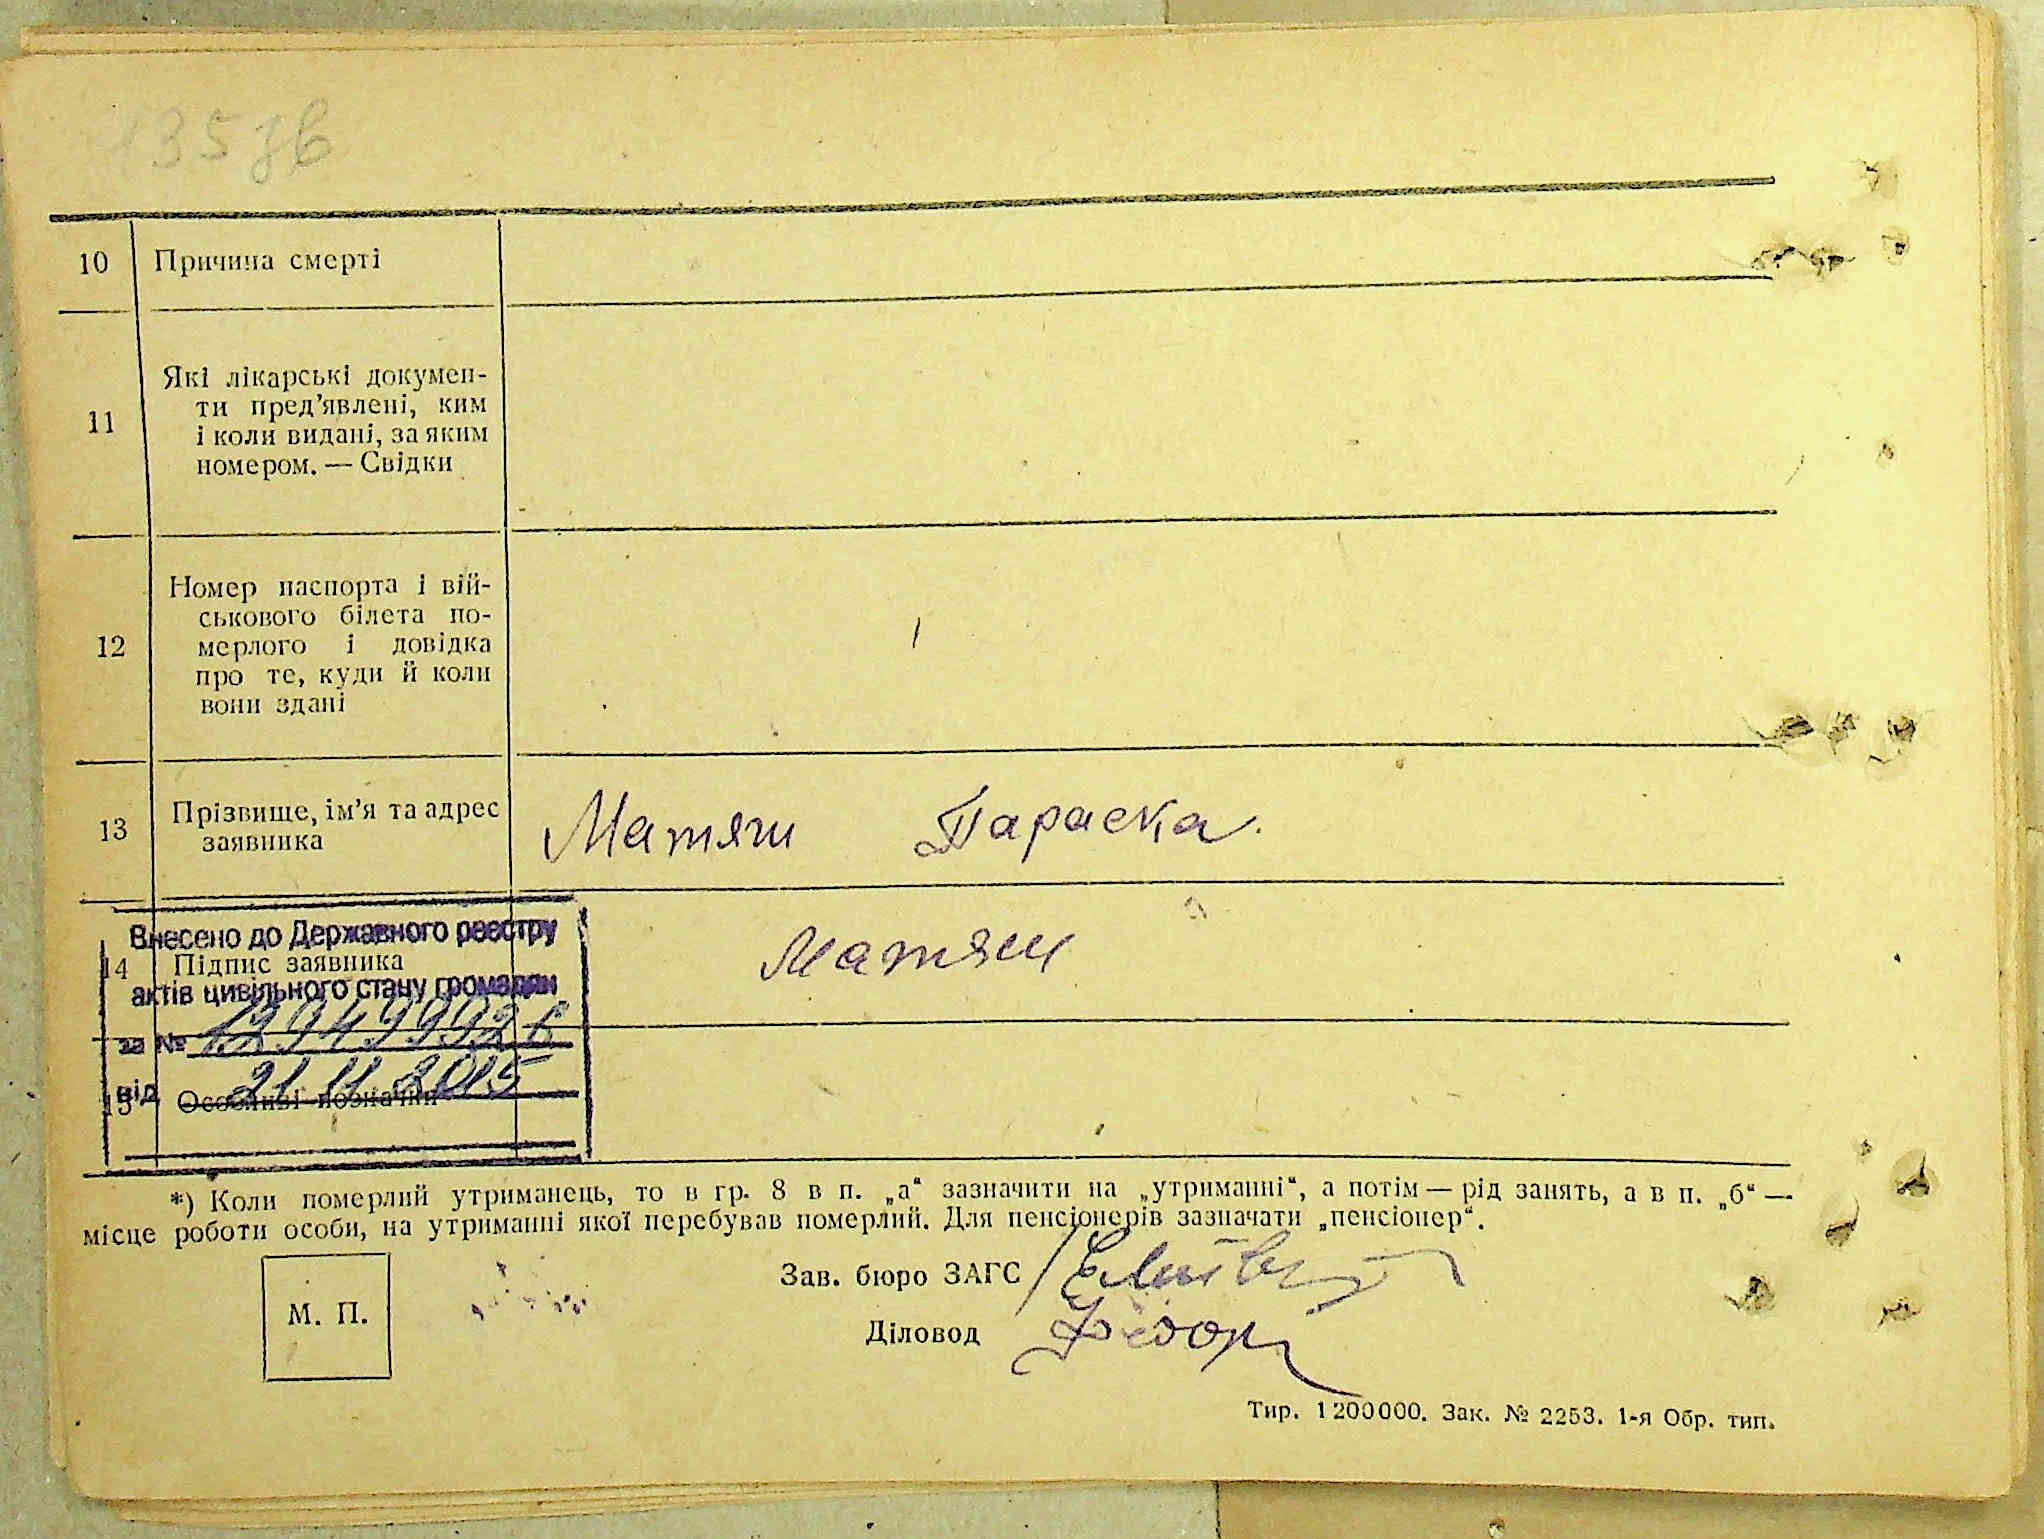 135 зв
10 Причина смерті
11 Які лікарські докумен-
ти пред’явлені, ким
і коли видані, за яким
номером. — Свідки
12 Номер паспорта і вій-
ськового білета по-
мерлого і довідка
про те, куди й коли
вони здані
13 Прізвище, ім’я та адрес
заявника
Матяш Параска.
Внесено до Державного реєстру
14 Підпис заявника
Матяш
актів цивільного стану громадян
за №
від 21.11.2015
15 Особливі позначки
*) Коли померлий утриманець, то в гр. 8 в п. „а“ зазначити на „утриманні“, а потім — рід занять, а в п. „б“ —
місце роботи особи, на утриманні якої перебував померлий. Для пенсіонерів зазначати „пенсіонер“.
Зав. бюро ЗАГС
М. П.
Діловод
Тир. 1200000. Зак. № 2253. 1-я Обр. тип.